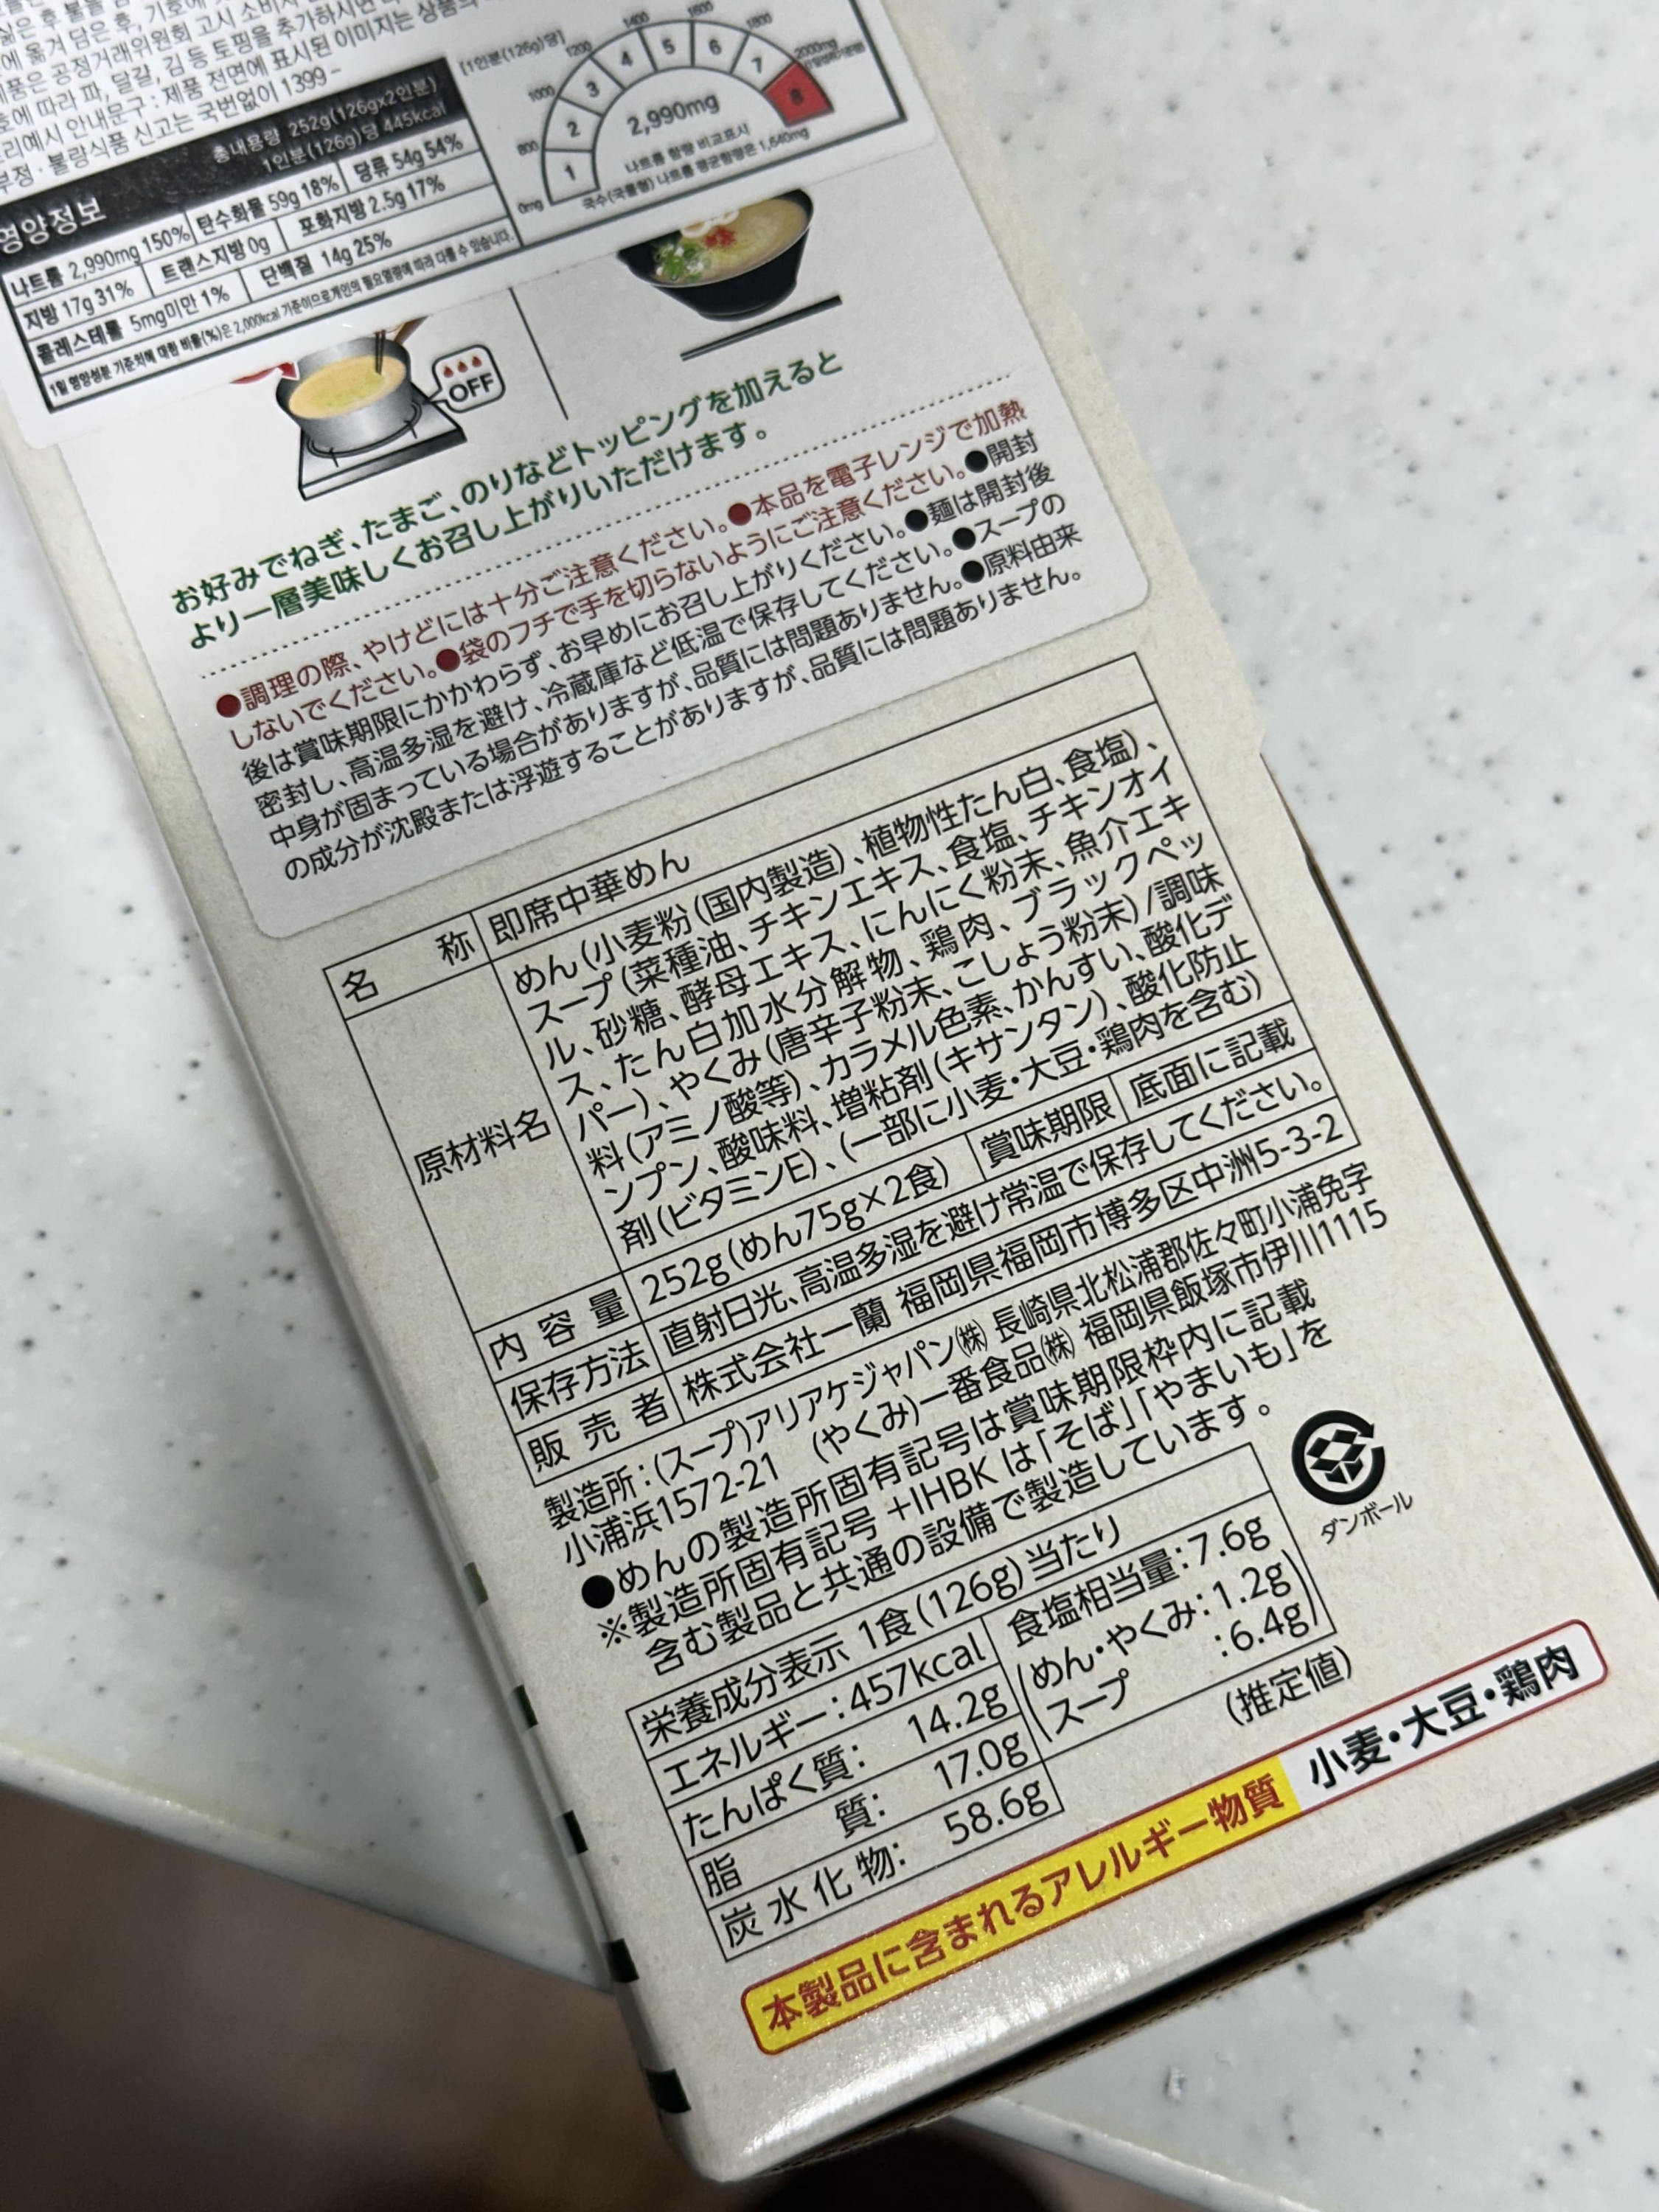 삶은 후 불을 끔
에 옮겨 담은 후, 기호에
제품은 공정거래위원회 고시 소비자
호에 따라 파, 달걀, 김 등 토핑을 추가하시면
리예시 안내문구 : 제품 전면에 표시된 이미지는 상품의
부정·불량식품 신고는 국번없이 1399 -
영양정보
총 내용량 252g(126gx2인분)
1인분(126g)당 445kcal
나트륨 2,990mg 150% 탄수화물 59g 18% 당류 54g 54%
지방 17g 31% 트랜스지방 0g 포화지방 2.5g 17%
콜레스테롤 5mg미만 1% 단백질 14g 25%
1일 영양성분 기준치에 대한 비율(%)은 2,000kcal 기준이므로 개인의 필요 열량에 따라 다를 수 있습니다.
[1인분(126g)당]
0mg 800 1000 1200 1400 1600 1800 2000mg
1 2 3 4 5 6 7 8
2,990mg
나트륨 함량 비교표시
국수(국물형) 나트륨 평균함량은 1,640mg
OFF
お好みでねぎ、たまご、のりなどトッピングを加えると
より一層美味しくお召し上がりいただけます。
●調理の際、やけどには十分ご注意ください。●本品を電子レンジで加熱
しないでください。●袋のフチで手を切らないようにご注意ください。●開封
後は賞味期限にかかわらず、お早めにお召し上がりください。●麺は開封後
密封し、高温多湿を避け、冷蔵庫など低温で保存してください。●スープの
中身が固まっている場合がありますが、品質には問題ありません。●原料由来
の成分が沈殿または浮遊することがありますが、品質には問題ありません。
名称 即席中華めん
原材料名 めん(小麦粉(国内製造)、植物性たん白、食塩)、
スープ(菜種油、チキンエキス、食塩、チキンオイ
ル、砂糖、酵母エキス、にんにく粉末、魚介エキ
ス、たん白加水分解物、鶏肉、ブラックペッ
パー)、やくみ(唐辛子粉末、こしょう粉末)/調味
料(アミノ酸等)、カラメル色素、かんすい、酸化デ
ンプン、酸味料、増粘剤(キサンタン)、酸化防止
剤(ビタミンE)、(一部に小麦・大豆・鶏肉を含む)
内容量 252g(めん75g×2食) 賞味期限 底面に記載
保存方法 直射日光、高温多湿を避け常温で保存してください。
販売者 株式会社一蘭 福岡県福岡市博多区中洲5-3-2
製造所:(スープ)アリアケジャパン㈱ 長崎県北松浦郡佐々町小浦免字
小浦浜1572-21 (やくみ)一番食品㈱ 福岡県飯塚市伊川1115
●めんの製造所固有記号は賞味期限枠内に記載
※製造所固有記号 +IHBK は「そば」「やまいも」を
含む製品と共通の設備で製造しています。
ダンボール
栄養成分表示 1食(126g)当たり
エネルギー:457kcal 食塩相当量:7.6g
たんぱく質: 14.2g (めん・やくみ:1.2g
脂質: 17.0g スープ :6.4g)
炭水化物: 58.6g (推定値)
本製品に含まれるアレルギー物質 小麦・大豆・鶏肉